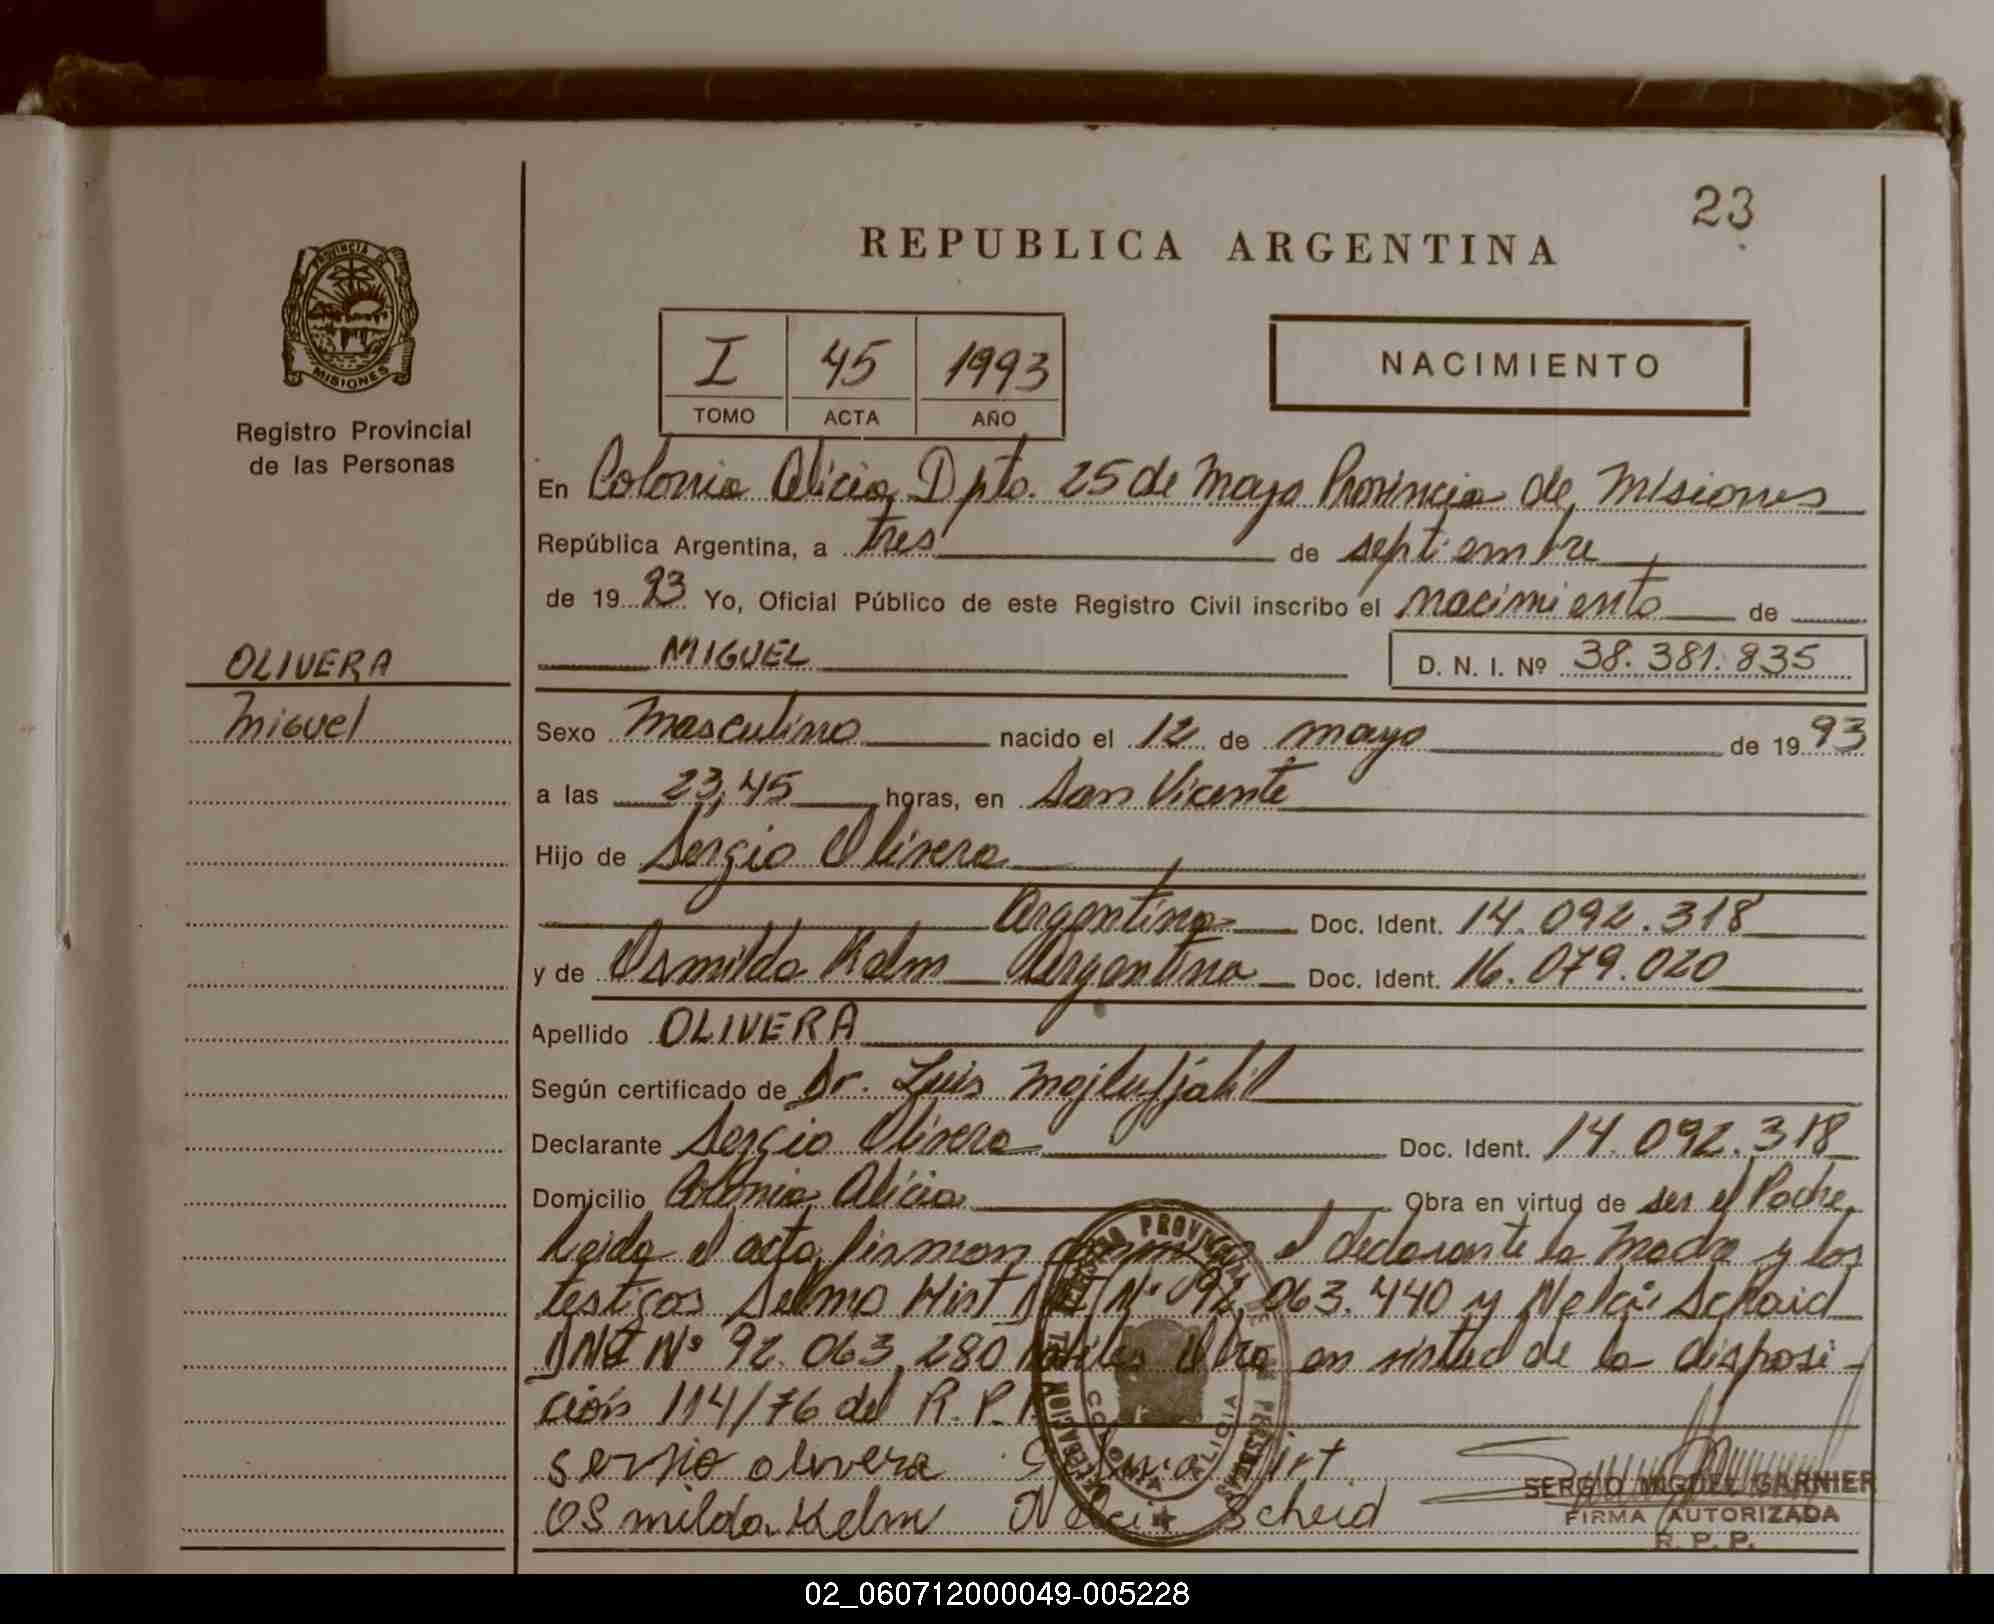 23
REPUBLICA ARGENTINA
PROVINCIA DE
MISIONES
Registro Provincial
de las Personas
I 45 1993
TOMO ACTA AÑO
NACIMIENTO
En Colonia Alicia, Dpto. 25 de Mayo Provincia de Misiones
República Argentina, a tres de septiembre
de 1993 Yo, Oficial Público de este Registro Civil inscribo el nacimiento de
OLIVERA
Miguel
MIGUEL D. N. I. Nº 38.381.835
Sexo Masculino nacido el 12 de mayo de 1993
a las 23,45 horas, en San Vicente
Hijo de Sergio Olivera
Argentino Doc. Ident. 14.092.318
y de Osmilda Kelm Argentina Doc. Ident. 16.079.020
Apellido OLIVERA
Según certificado de Dr. Luis
Declarante Sergio Olivera Doc. Ident. 14.092.318
Domicilio Colonia Alicia Obra en virtud de ser el Padre
Leida el acta, firman el declarante la Madre y los
testigos Selma Hirt Nº 92.063.440 y Nelci Scheid
DNI Nº 92.063.280 Obra en virtud de la disposi-
ción 114/76 del R.P.P.
sergio olivera Selma Hirt
OSmilda Kelm Nelci Scheid
SERGIO MIGUEL GARNIER
FIRMA AUTORIZADA
R. P. P.
COLONIA ALICIA
02_060712000049-005228